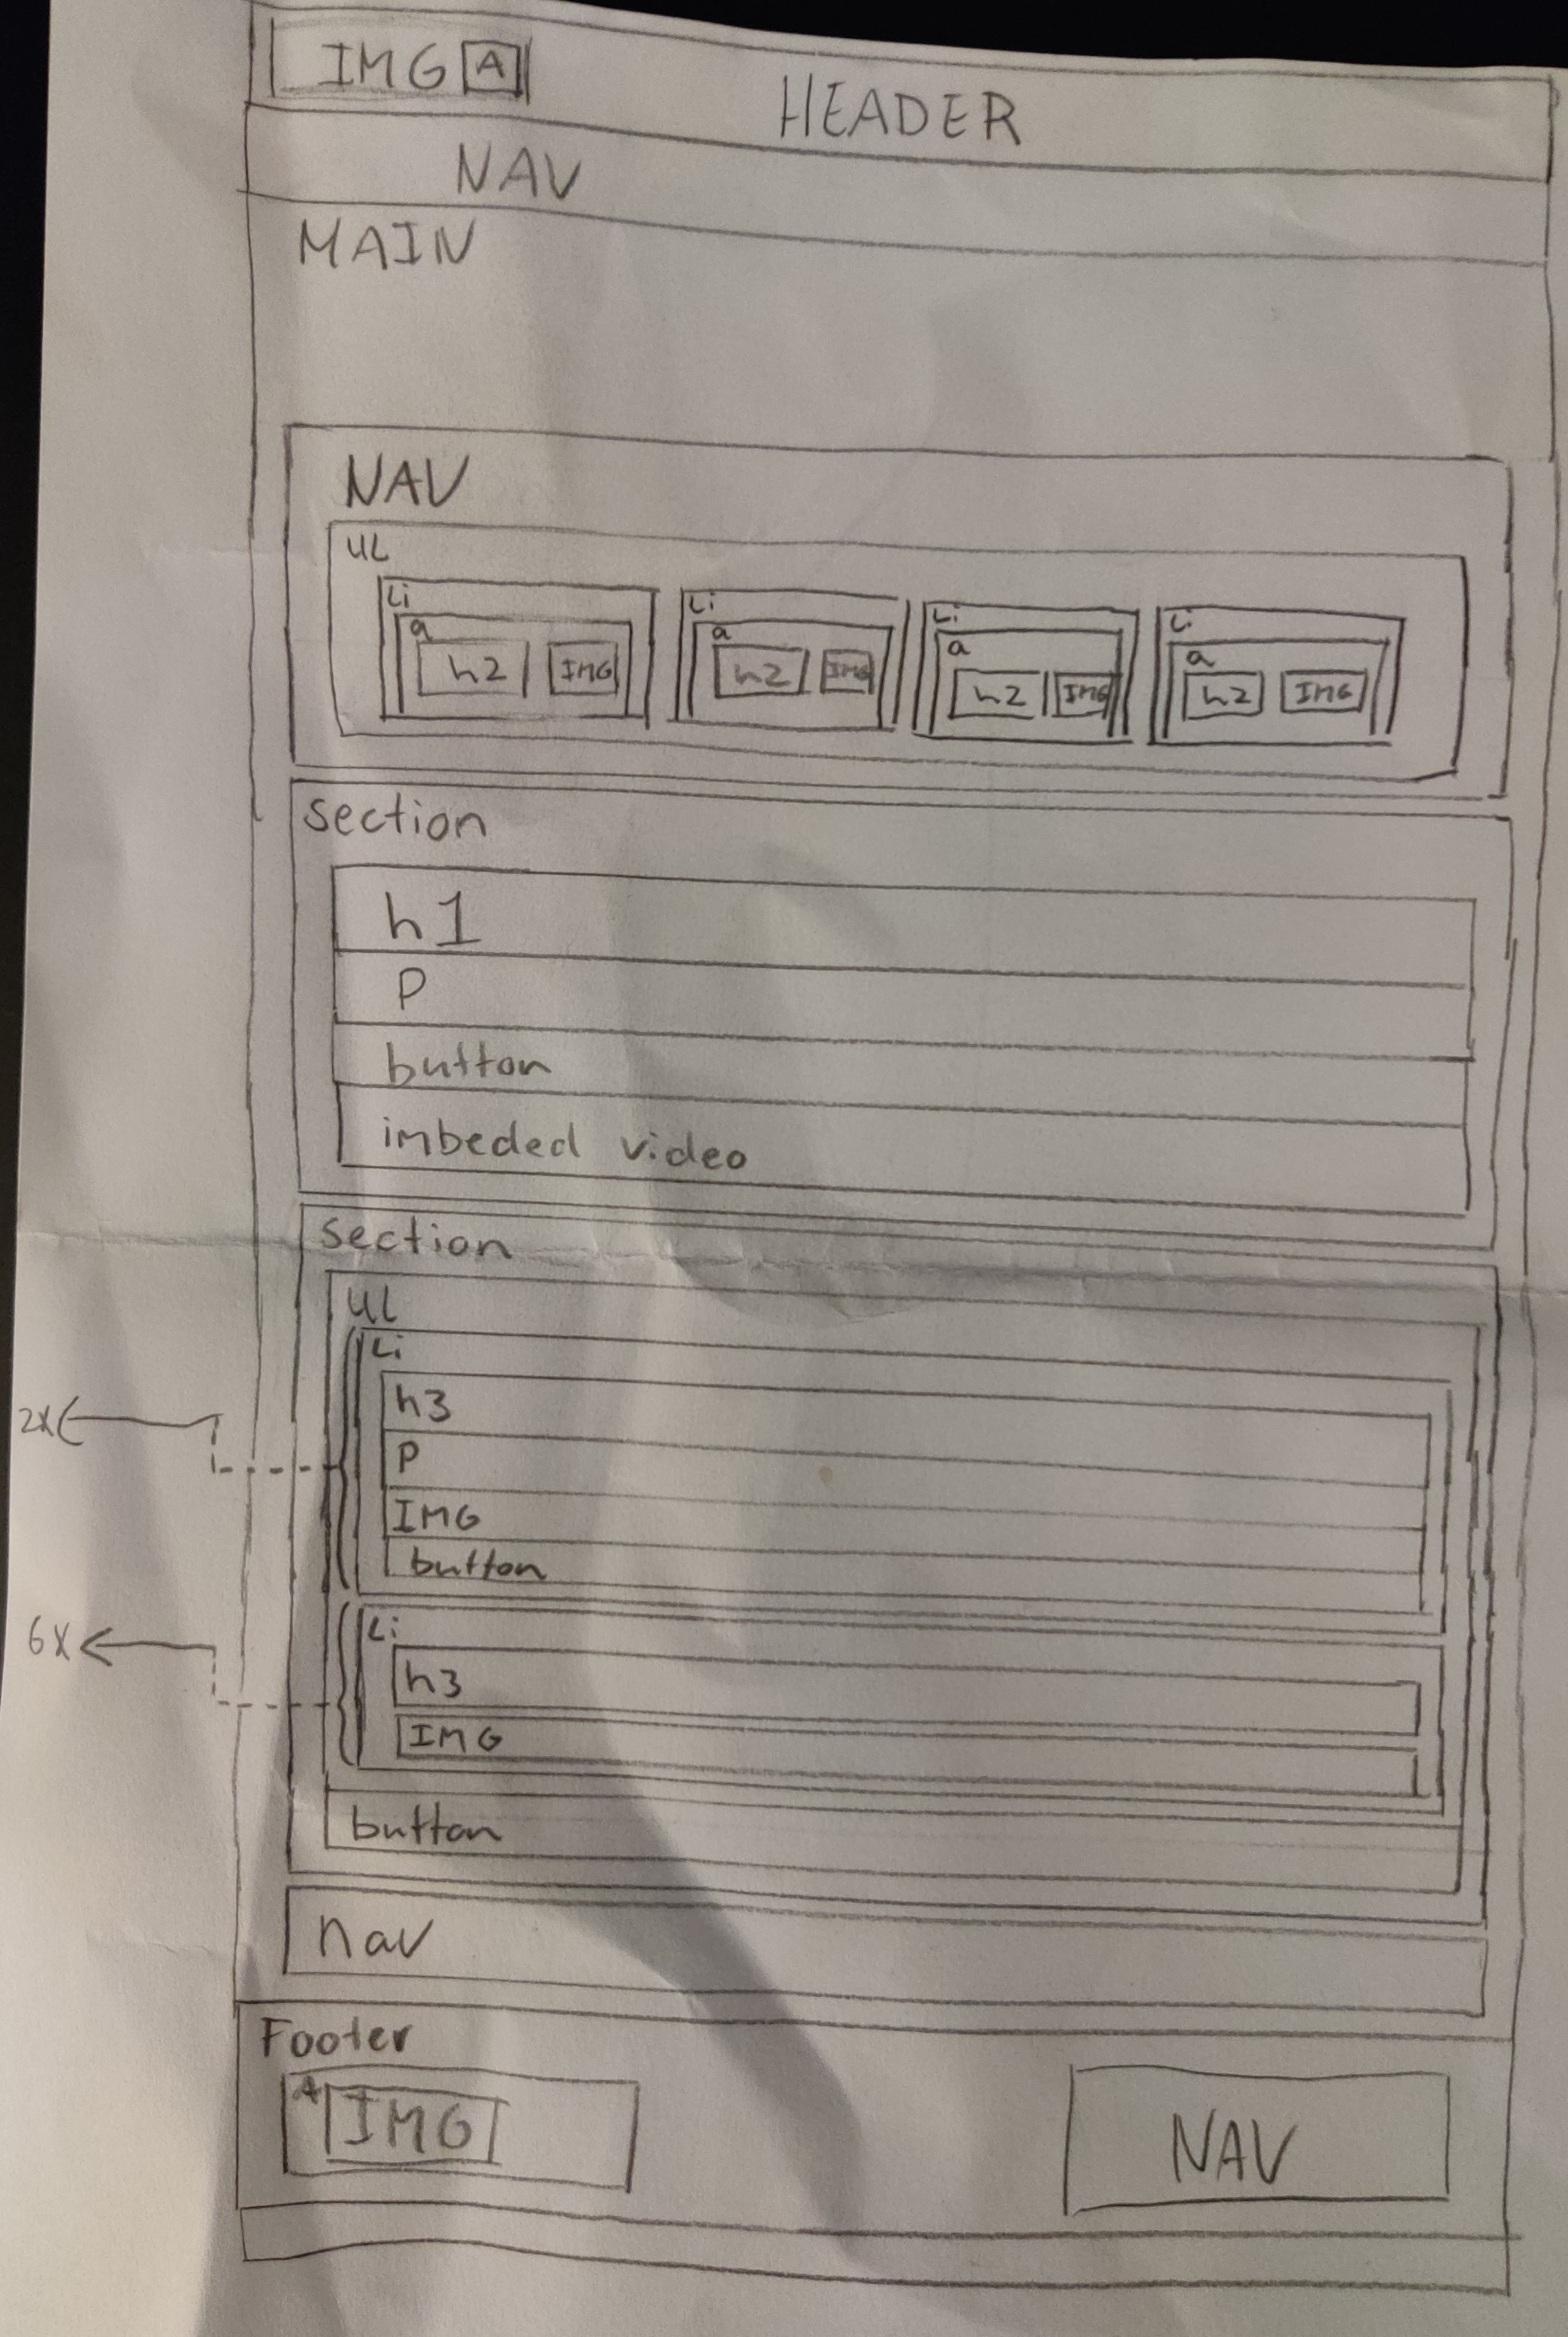 IMG A
HEADER
NAV
MAIN
NAV
UL
Li Li Li Li
a a a a
h2 IMG h2 IMG h2 IMG h2 IMG
section
h1
P
button
imbeded video
section
UL
Li
h3
2x
P
IMG
button
Li
6x
h3
IMG
button
nav
Footer
A IMG
NAV